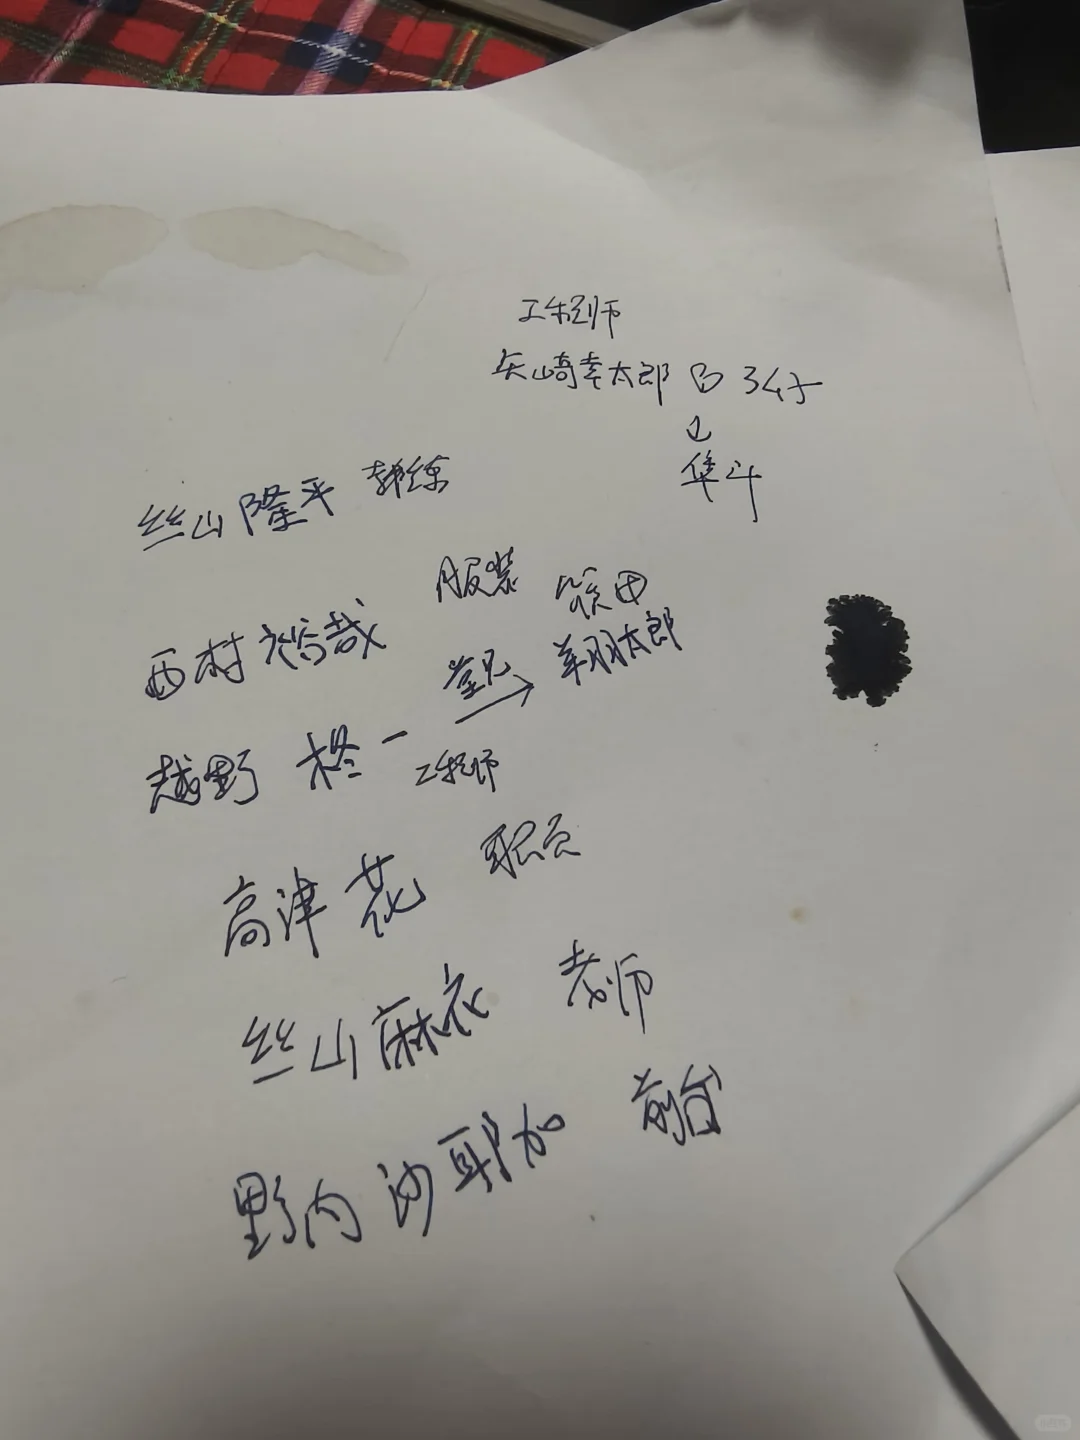 工程师
矢山崎幸太郎 B 34才
隼斗
丝山隆平 教练
服装
西村裕哉
筱田
堂兄 → 翔太郎
越野 柊一 工程师
高津花 职员
丝山麻衣 老师
野内沙耶加 前台